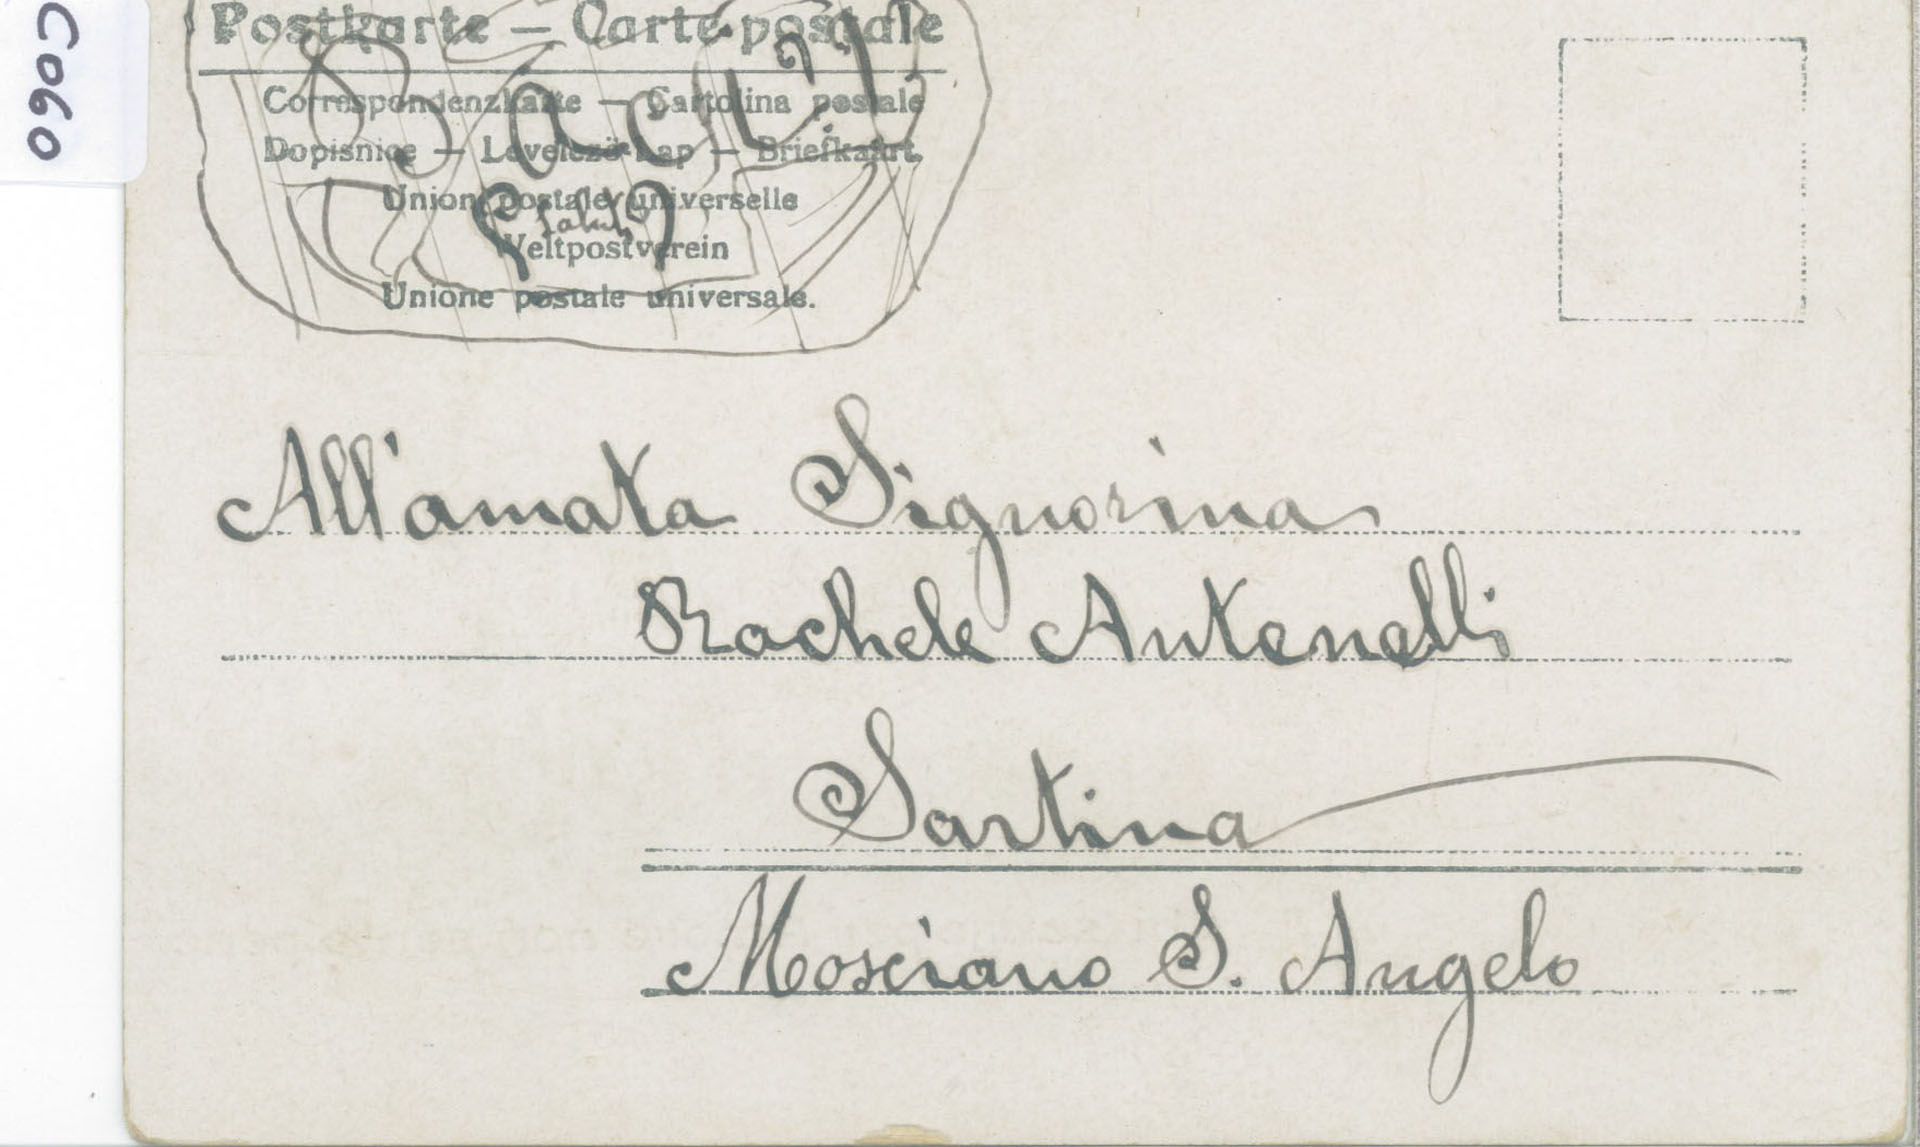 C060
Postkarte — Carte postale
Correspondenzkarte — Cartolina postale
Dopisnice — Levelező-Lap — Briefkaart
Union postale universelle
Weltpostverein
Unione postale universale.
Baci
All'amata Signorina
Rachele Antonelli
Sartina
Mosciano S. Angelo